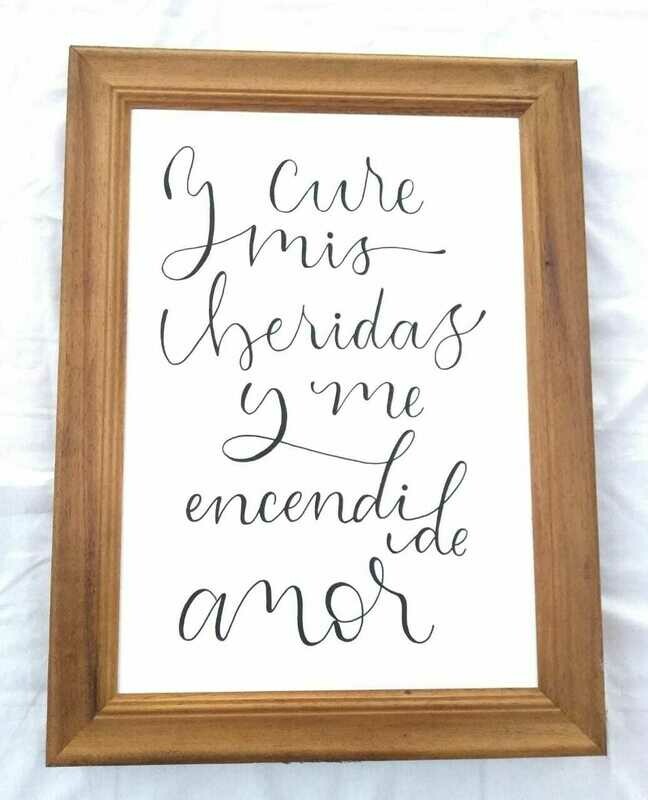 Y cure
mis
heridas
y me
encendi
de
amor